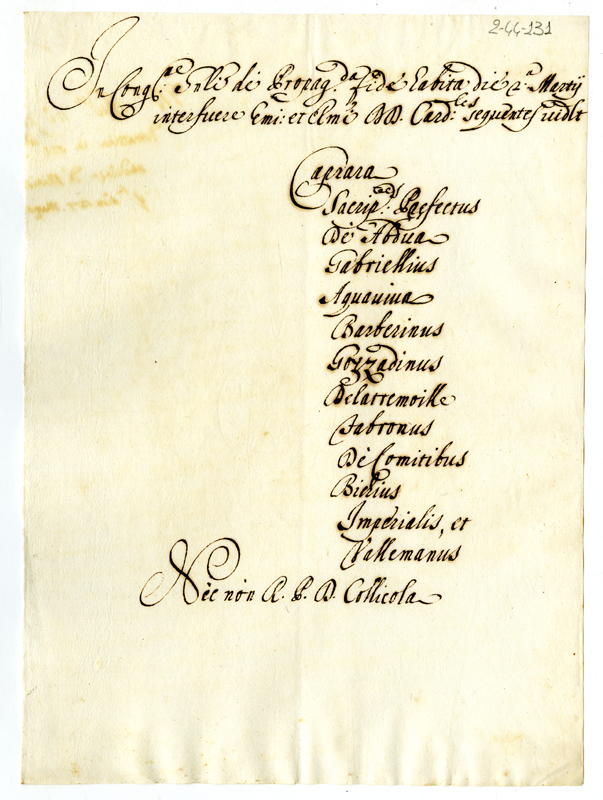 2-44-131
In Cong.ne Gñli de Propag.da fide habita die 2.a Martij
interfuere Emi: et Rmi DD. Card.les sequentes vidlt
Caprara
Sacrip.tes: Praefectus
De Abdua
Gabriellius
Aquaviva
Barberinus
Gozzadinus
Delatremoille
Fabronus
De Comitibus
Bichius
Imperialis, et
Vallemanus
Nec non R. P. D. Collicola